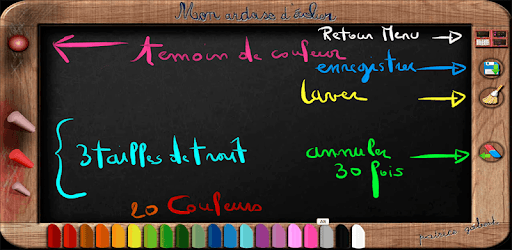 Mon ardoise d'écolier
Retour Menu
temoin de couleur
enregistrer
laver
3 tailles de trait
annuler
30 fois
20 Couleurs